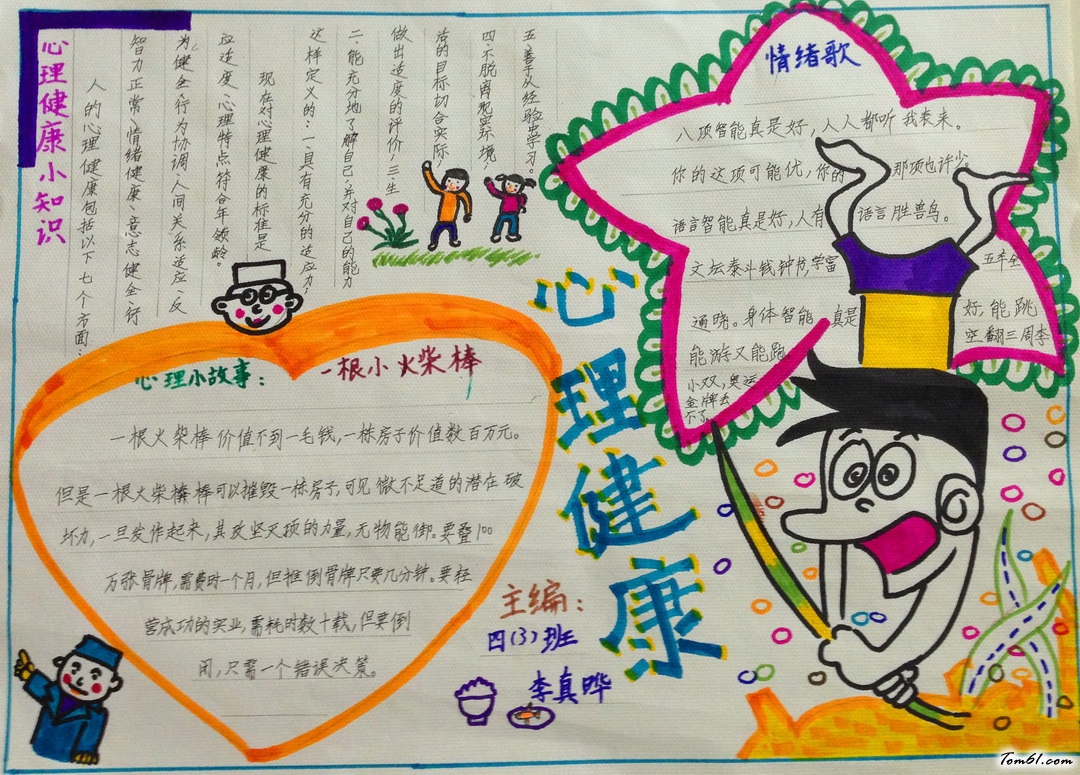 心理健康小知识
人的心理健康包括以下七个方面：
智力正常、情绪健康、意志健全、行
为健全、行为协调、人间关系适应、反
应适度、心理特点符合年龄。
现在对心理健康的标准是
这样定义的：一、具有充分的适应力；
二、能充分地了解自己，并对自己的能力
做出适度的评价；三、生
活的目标切合实际；
四、不脱离现实环境
五、善于从经验中学习。
情绪歌
八项智能真是好，人人都听我表来。
你的这项可能优，你的那项也许少。
语言智能真是好，人有语言胜兽鸟。
文坛泰斗钱钟书，学富五车全
通晓。身体智能真是好，能跳
能游又能跑。空翻三周李
小双，奥运
金牌去
不了。
心理健康
心理小故事：一根小火柴棒
一根火柴棒价值不到一毛钱，一栋房子价值数百万元。
但是一根火柴棒棒可以摧毁一栋房子，可见微不足道的潜在破
坏力，一旦发作起来，其攻坚灭顶的力量，无物能御。要叠100
万张骨牌，需费时一个月，但推倒骨牌只要几分钟。要经
营成功的实业，需耗时数十载，但要倒
闭，只需一个错误决策。
主编：
四(3)班
李真晔
Tom61.com